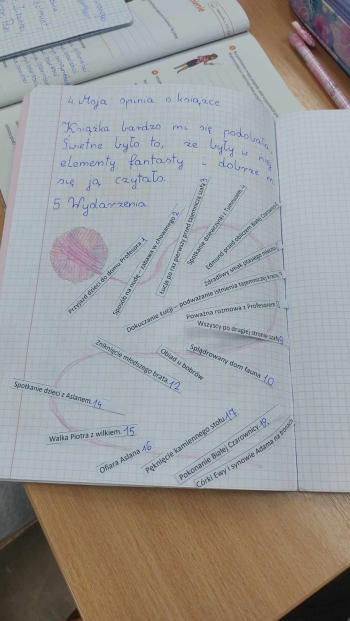 4. Moja opinia o książce
Książka bardzo mi się podobała.
Świetne było to, że były w niej
elementy fantasty - dobrze m
się ją czytało.
5 Wydarzenia
Przyjazd dzieci do domu Profesora 1
Sposób na nudę – zabawa w chowanego 2
Łucja po raz pierwszy przed tajemniczą szafą 3
Spotkanie dziewczynki z Tumnusem 4
Edmund przed obliczem Białej Czarownicy
Zdradliwy smak ptasiego mleczka
Dokuczanie Łucji – podważanie istnienia tajemniczej krainy
Poważna rozmowa z Profesorem
Wszyscy po drugiej stronie szafy
Splądrowany dom fauna 10
Obiad u bobrów
Zniknięcie młodszego brata 12
Spotkanie dzieci z Aslanem. 14
Walka Piotra z wilkiem. 15
Ofiara Aslana 16
Pęknięcie kamiennego stołu 17
Pokonanie Białej Czarownicy
Córki Ewy i synowie Adama na